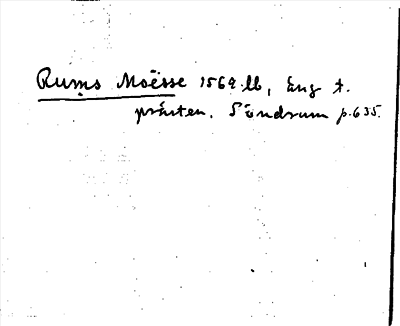 Rums Moësse 1569 lb, äng t.
prästen. Söndrum p. 635.